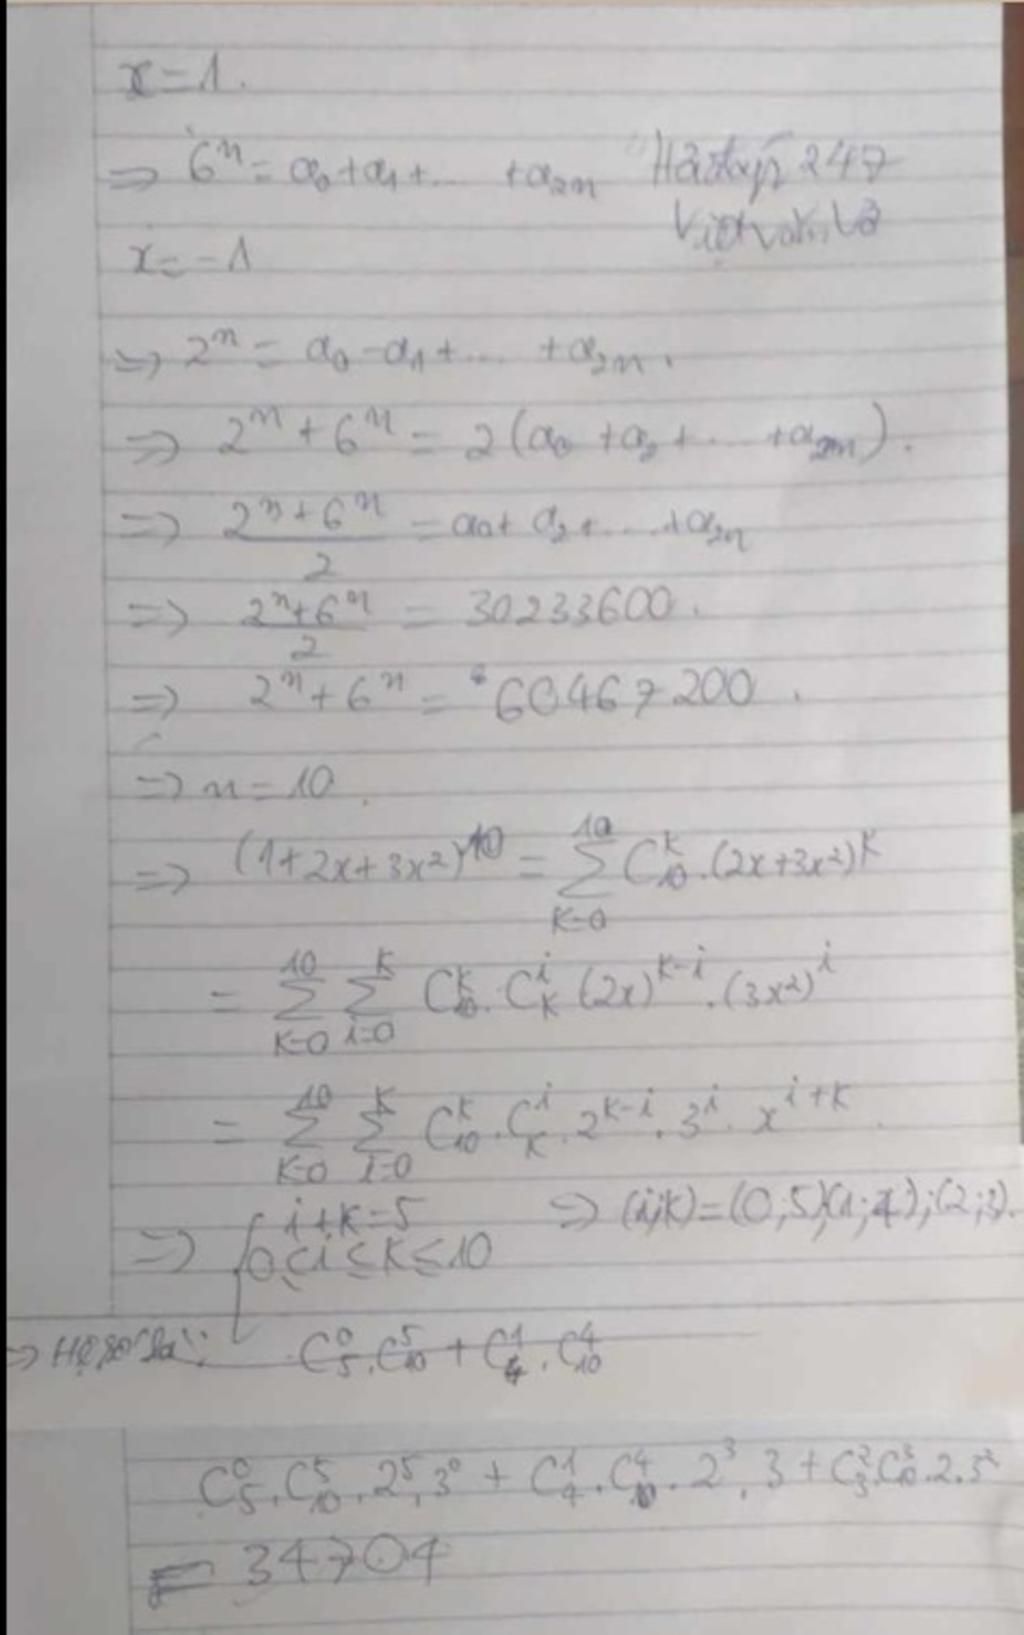 x = 1.
⇒ 6ⁿ = a₀ + a₁ + ... + a₂ₙ
247
x = -1
⇒ 2ⁿ = a₀ - a₁ + ... + a₂ₙ.
⇒ 2ⁿ + 6ⁿ = 2(a₀ + a₂ + ... + a₂ₙ).
⇒ (2ⁿ + 6ⁿ)/2 = a₀ + a₂ + ... + a₂ₙ
⇒ (2ⁿ + 6ⁿ)/2 = 30233600.
⇒ 2ⁿ + 6ⁿ = 60467200.
⇒ n = 10.
⇒ (1+2x+3x²)^10 = ∑_{K=0}^{10} C_{10}^{k}.(2x+3x²)^k
= ∑_{K=0}^{10} ∑_{i=0}^{K} C_{10}^{k}.C_{K}^{i} (2x)^{k-i}.(3x²)^i
= ∑_{K=0}^{10} ∑_{i=0}^{K} C_{10}^{k}.C_{K}^{i}.2^{k-i}.3^i.x^{i+k}.
⇒ { i+k=5 ⇒ (i;k)=(0;5)(1;4);(2;3).
0≤i≤k≤10
C_5^0.C_{10}^5 + C_4^1.C_{10}^4
C_5^0.C_{10}^5.2^5.3^0 + C_4^1.C_{10}^4.2^3.3 + C_3^2.C_{10}^3.2.3^2
= 34704